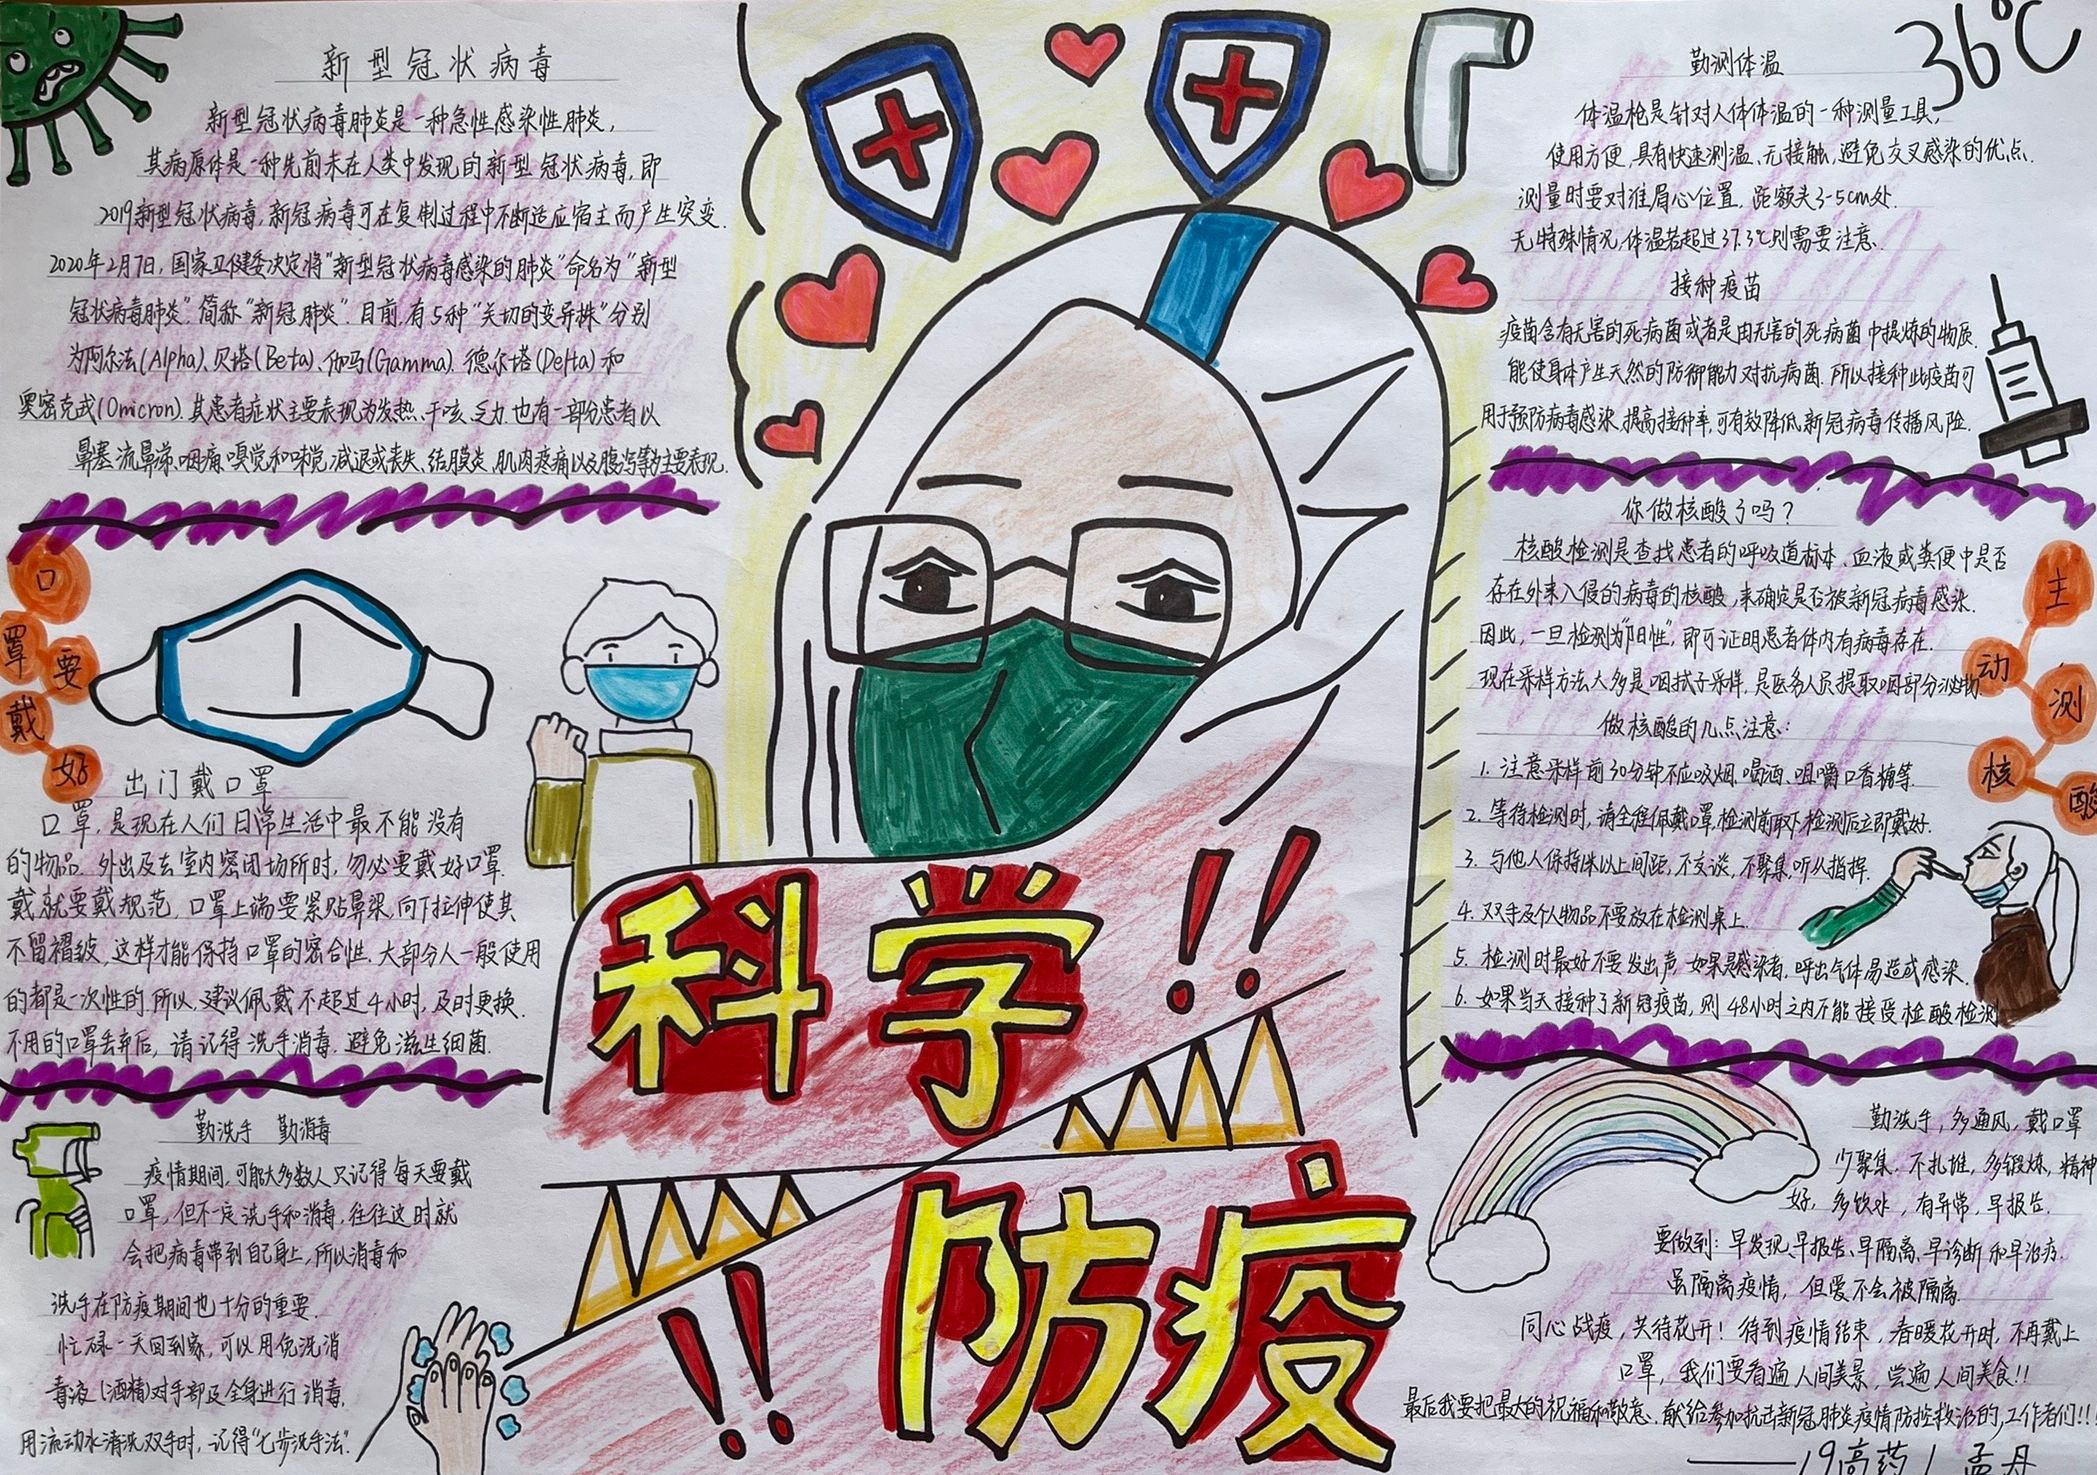 新型冠状病毒
新型冠状病毒肺炎是一种急性感染性肺炎，
其病原体是一种先前未在人类中发现的新型冠状病毒，即
2019新型冠状病毒，新冠病毒可在复制过程中不断适应宿主而产生突变.
2020年2月7日，国家卫健委决定将"新型冠状病毒感染的肺炎"命名为"新型
冠状病毒肺炎"，简称"新冠肺炎"．目前，有5种"关切的变异株"分别
为阿尔法(Alpha)、贝塔(Beta)、伽马(Gamma)、德尔塔(Delta)和
奥密克戎(Omicron)．其患者症状主要表现为发热、干咳、乏力．也有一部分患者以
鼻塞、流鼻涕、咽痛、嗅觉和味觉减退或丧失、结膜炎、肌肉疼痛以及腹泻等为主要表现．
口罩要戴好
出门戴口罩
口罩，是现在人们日常生活中最不能没有
的物品．外出及去室内密闭场所时，勿必要戴好口罩．
戴就要戴规范，口罩上端要紧贴鼻梁，向下拉伸使其
不留褶皱，这样才能保持口罩的密合性．大部分人一般使用
的都是一次性的．所以，建议佩戴不超过4小时，及时更换．
不用的口罩丢弃后，请记得洗手消毒．避免滋生细菌．
勤洗手 勤消毒
疫情期间，可能大多数人只记得每天要戴
口罩，但不一定洗手和消毒，往往这时就
会把病毒带到自己身上，所以消毒和
洗手在防疫期间也十分的重要．
忙碌一天回到家，可以用免洗消
毒液(酒精)对手部及全身进行消毒．
用流动水清洗双手时，记得"七步洗手法"．
科学!!
!!防疫
36℃
勤测体温
体温枪是针对人体体温的一种测量工具，
使用方便，具有快速测温、无接触，避免交叉感染的优点．
测量时要对准眉心位置，距额头3-5cm处．
无特殊情况，体温若超过37.3℃则需要注意．
接种疫苗
疫苗含有无害的死病菌或者是由无害的死病菌中提炼的物质．
能使身体产生天然的防御能力对抗病菌．所以接种此疫苗可
用于预防病毒感染，提高接种率，可有效降低新冠病毒传播风险．
你做核酸了吗？
核酸检测是查找患者的呼吸道标本、血液或粪便中是否
存在外来入侵的病毒的核酸，来确定是否被新冠病毒感染．
因此，一旦检测为"阳性"，即可证明患者体内有病毒存在．
现在采样方法大多是咽拭子采样，是医务人员提取咽部分泌物．
主动测核酸
做核酸的几点注意：
1. 注意采样前30分钟不应吸烟、喝酒、咀嚼口香糖等．
2. 等待检测时，请全程佩戴口罩，检测前取下，检测后立即戴好．
3. 与他人保持1米以上间距，不交谈，不聚集，听从指挥．
4. 双手及个人物品不要放在检测桌上．
5. 检测时最好不要发出声，如果是感染者，呼出气体易造成感染．
6. 如果当天接种了新冠疫苗，则48小时之内不能接受检酸检测
勤洗手，多通风，戴口罩
少聚集．不扎堆，多锻炼，精神
好，多饮水，有异常，早报告．
要做到：早发现、早报告、早隔离、早诊断和早治疗．
虽隔离疫情，但爱不会被隔离．
同心战疫，共待花开！待到疫情结束，春暖花开时，不再戴上
口罩，我们要看遍人间美景，尝遍人间美食!!
最后我要把最大的祝福和敬意，献给参加抗击新冠肺炎疫情防控救治的，工作者们!!!
——19高药1 孟丹